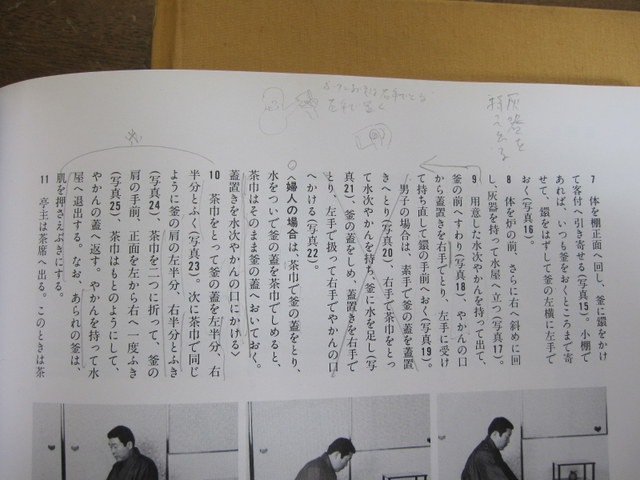 7　体を棚正面へ回し、釜に鐶をかけ
て客付へ引き寄せる(写真15)。小棚で
あれば、いつも釜をおくところまで寄
せて、鐶をはずして釜の左横に左手で
おく(写真16)。
8　体を炉の前、さらに右へ斜めに回
し、灰器を持って水屋へ立つ(写真17)。
9　用意した水次やかんを持って出て、
釜の前へすわり(写真18)、やかんの口
から蓋置きを右手でとり、左手に受け
て持ち直して鐶の手前へおく(写真19)。
男子の場合は、素手で釜の蓋を蓋置
きへとり(写真20)、右手で茶巾をとっ
て水次やかんを持ち、釜に水を足し(写
真21)、釜の蓋をしめ、蓋置きを右手で
とり、左手で扱って右手でやかんの口
へかける(写真22)。
〈婦人の場合は、茶巾で釜の蓋をとり、
水をついで釜の蓋を茶巾でしめると、
茶巾はそのまま釜の蓋へおいておく。
蓋置きを水次やかんの口にかける〉
10　茶巾をとって釜の蓋を左半分、右
半分とふく(写真23)。次に茶巾で同じ
ように釜の肩の左半分、右半分とふき
(写真24)、茶巾を二つに折って、釜の
肩の手前、正面を左から右へ一度ふき
(写真25)、茶巾はもとのようにして、
やかんの蓋へ返す。やかんを持って水
屋へ退出する。なお、あられの釜は、
肌を押さえぶきにする。
11　亭主は茶席へ出る。このときは茶
灰器を
持って